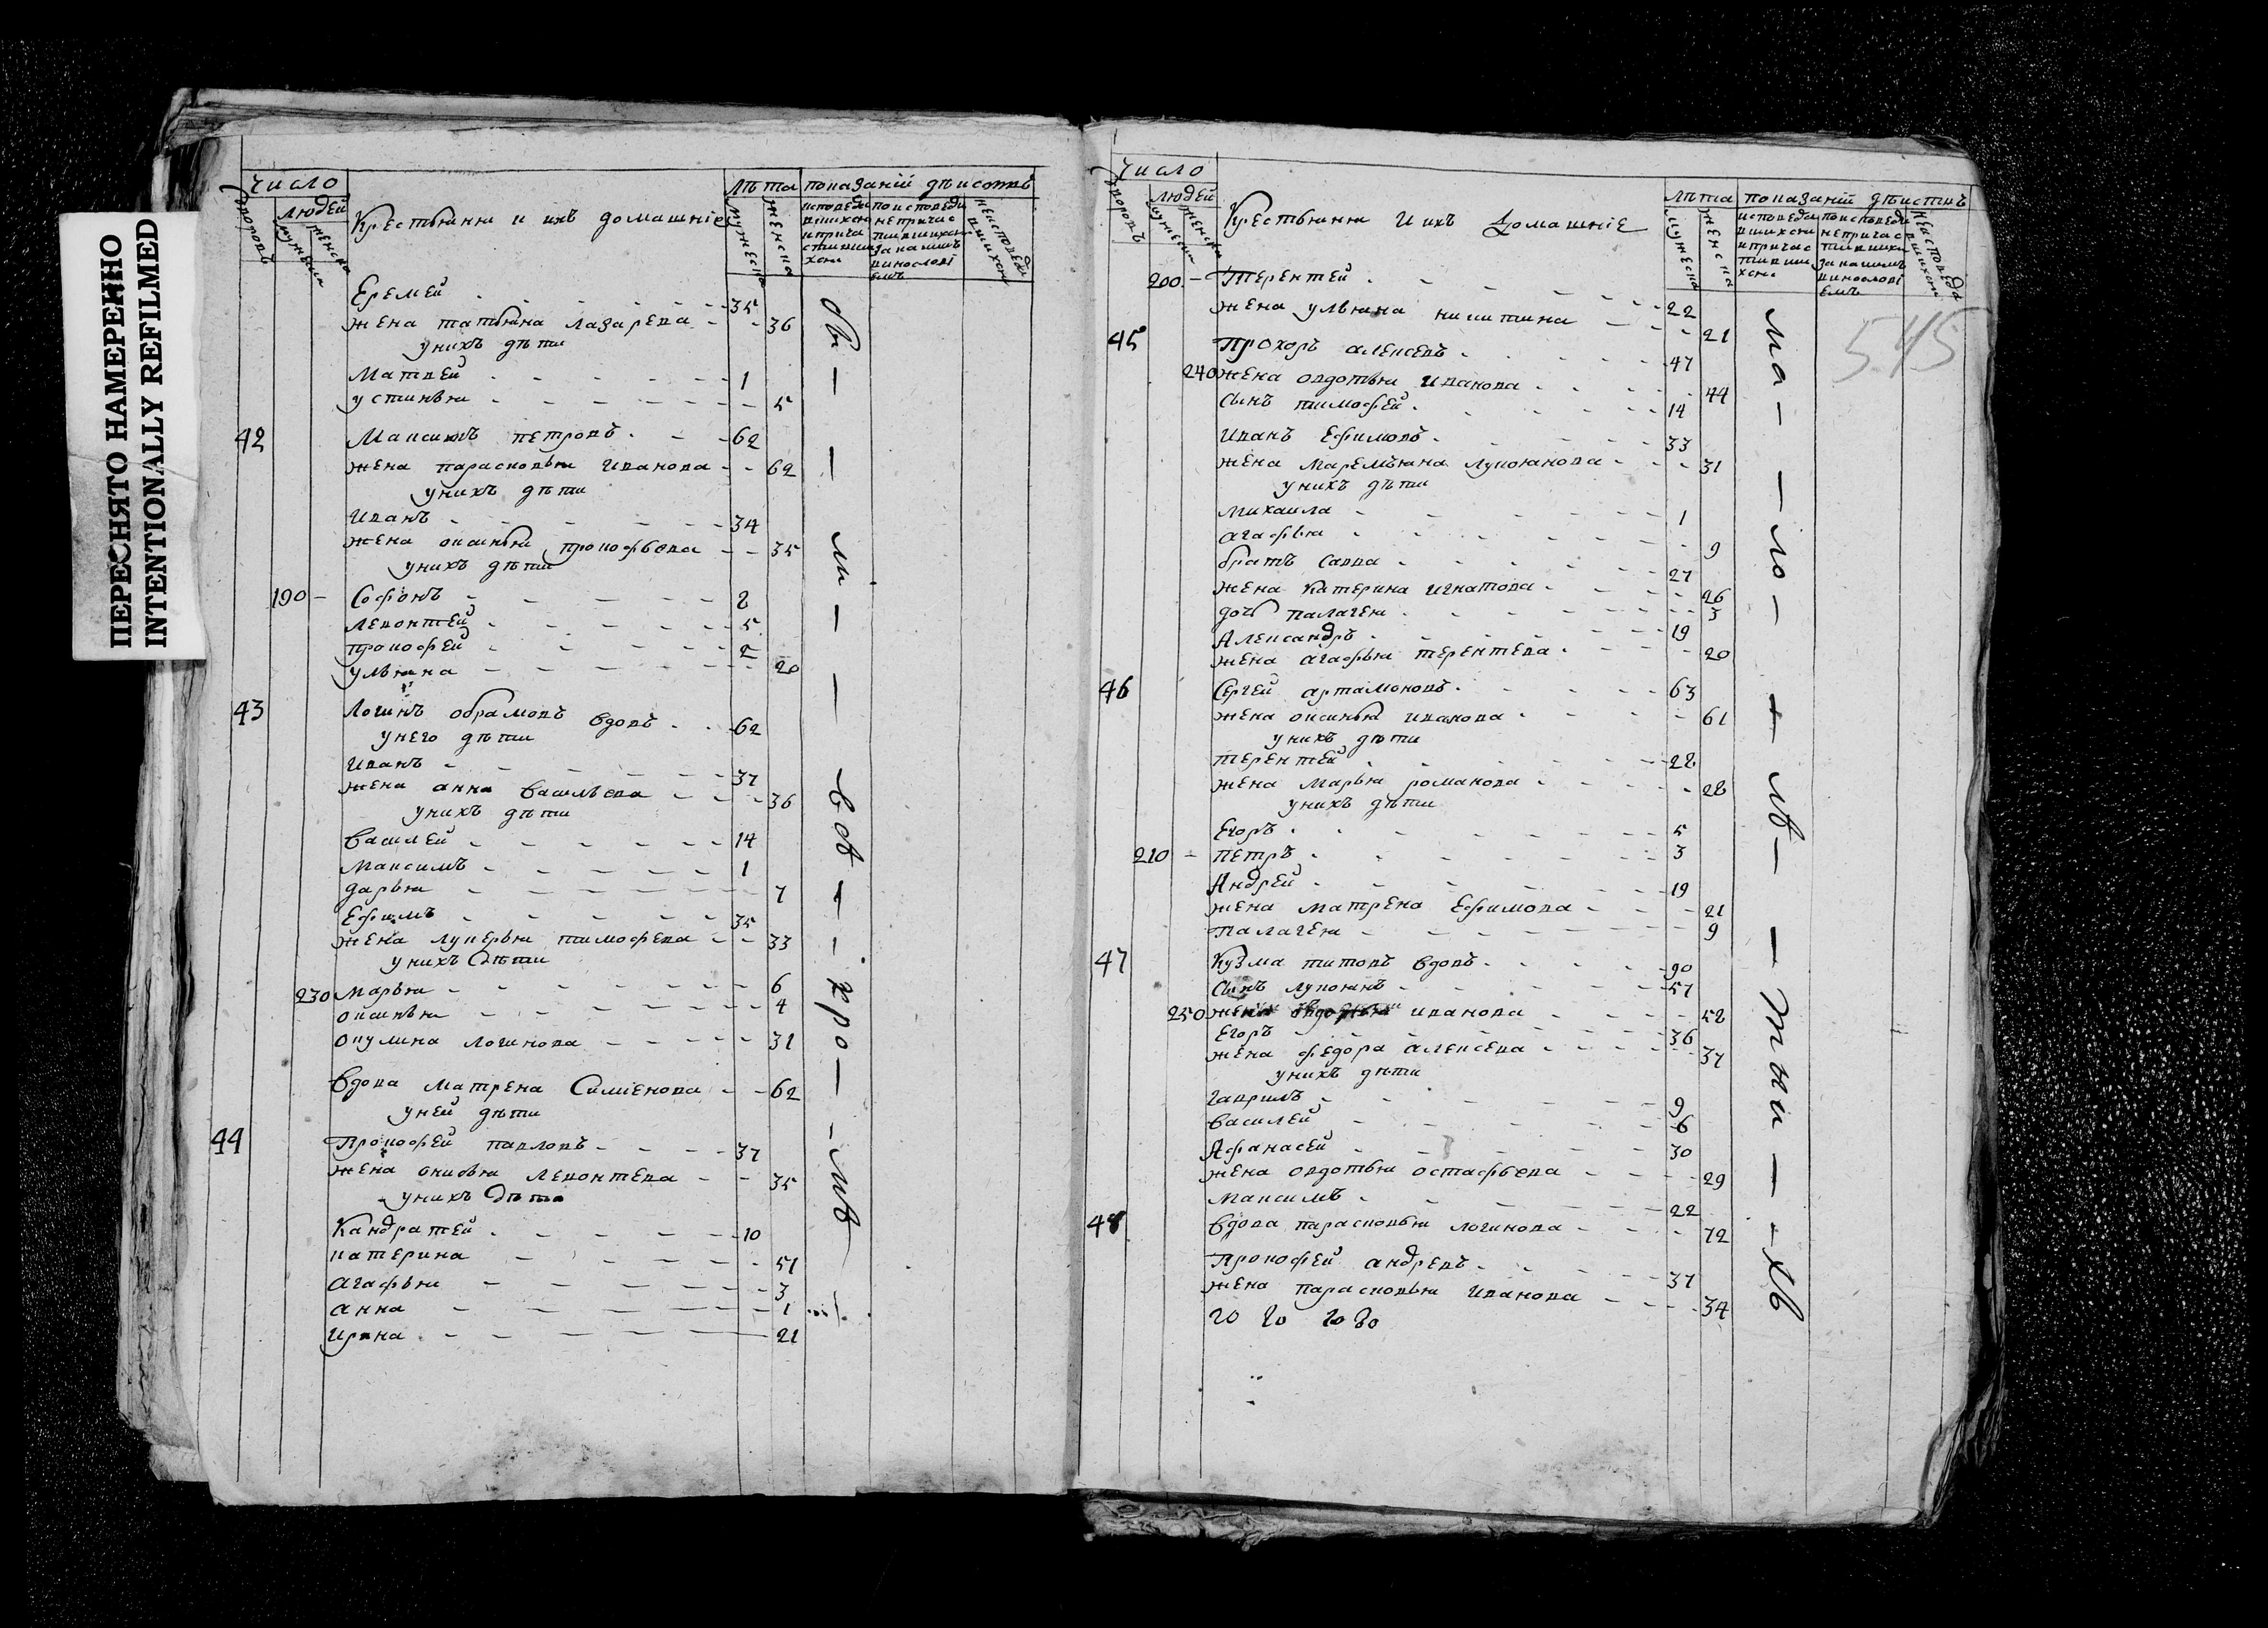 ПЕРЕСНЯТО НАМЕРЕННО
INTENTIONALLY REFILMED
Число
дворовъ
людей
мужеска
женска
Крестьянѣ и ихъ домашніе
лѣта
мужеска
женска
показаніи дѣйствъ
исповеда
вшихся
и прича
стивши
хся
по исповеди
не причас
тившихся
за какимъ
винословi
емъ
неисповеда
вшихся
Еремей 35
жена татьяна лазарева 36
у нихъ дѣти
Матвей 1
устинья 5
42 Максимъ петровъ 62
жена парасковья Иванова 62
у нихъ дѣти
Иванъ 34
жена оксинья прокофьева 35
у нихъ дѣти
190 Софонъ 8
левонтей 5
прокофей 2
ульяна 20
43 Логинъ обрамовъ вдовъ 62
у него дѣти
Иванъ 37
жена анна васильева 36
у нихъ дѣти
василей 14
Максимъ 1
дарья 7
Ефимъ 35
жена лукерья тимофева 33
у нихъ дѣти
230 Марья 6
оксинья 4
окулина логинова 31
вдова матрена Симіонова 62
у ней дѣти
44 Прокофей павловъ 37
жена левонтева 35
у нихъ дѣти
Кандратей 10
катерина 51
агафья 3
анна 1
Ирина 21
Число
дворовъ
людей
мужеска
женска
Крестьянѣ и ихъ домашніе
лѣта
мужеска
женска
показаніи дѣйствъ
исповеда
вшихся
и причас
тивши
хся
по исповеди
не причас
тившихся
за какимъ
винословi
емъ
неисповеда
вшихся
545
200 Терентей 22
жена ульяна никитина 21
45 Прохоръ алексевъ 47
240 жена овдотья Иванова 44
сынъ тимофей 14
Иванъ Ефимовъ 33
жена Маремьяна лукоянова 31
у нихъ дѣти
михаила 1
агафья 9
братъ савва 27
жена катерина Игнатова 26
дочь палагея 3
Александръ 19
жена агафья терентева 20
46 Сергей артамоновъ 63
жена оксинья иванова 61
у нихъ дѣти
терентей 28
жена марья романова 28
у нихъ дѣти
Егоръ 5
210 петръ 3
Андрей 19
жена матрена Ефимова 21
палагея 9
47 Кузма титовъ вдовъ 90
сынъ лукоянъ 57
250 жена овдотья иванова 58
Егоръ 36
жена федора алексева 37
у нихъ дѣти
гаврилъ 9
василей 6
Афанасей 30
жена овдотья остафьева 29
максимъ 22
48 вдова парасковья логинова 72
Прокофей андревъ 37
жена парасковья Иванова 34